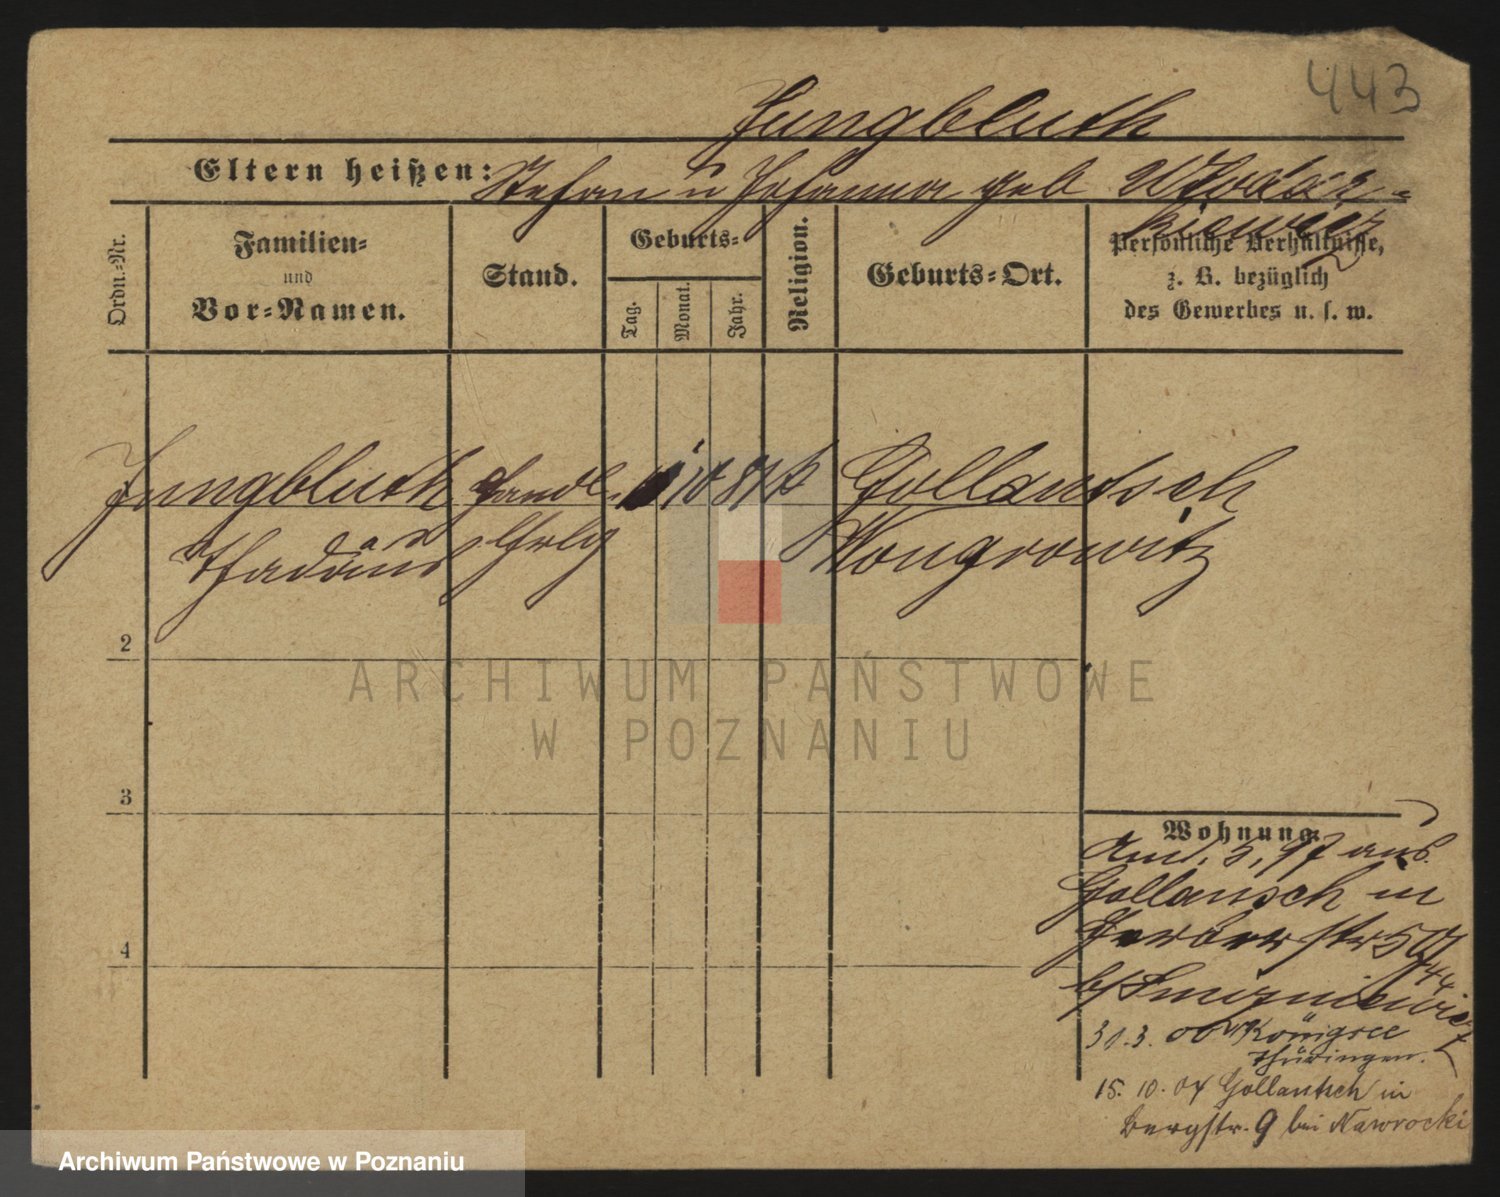 443
Jungbluth
Eltern heißen: Stefan u Johanna geb
Ordn.-Nr.
Familien-
und
Vor-Namen.
Stand.
Geburts-
Tag.
Monat.
Jahr.
Religion.
Geburts-Ort.
Persönliche Verhältnisse,
z. B. bezüglich
des Gewerbes u. s. w.
Jungbluth Handl. 10 Gollantsch
Thadäus Wongrowitz
2
3
4
Wohnung:
aus
Gollantsch in
Gerberstr
b/
31.3.00 Königsee
Thüringen.
15. 10. 04 Gollantsch in
Bergstr. 9 bei Nawrocki
ARCHIWUM PAŃSTWOWE
W POZNANIU
Archiwum Państwowe w Poznaniu